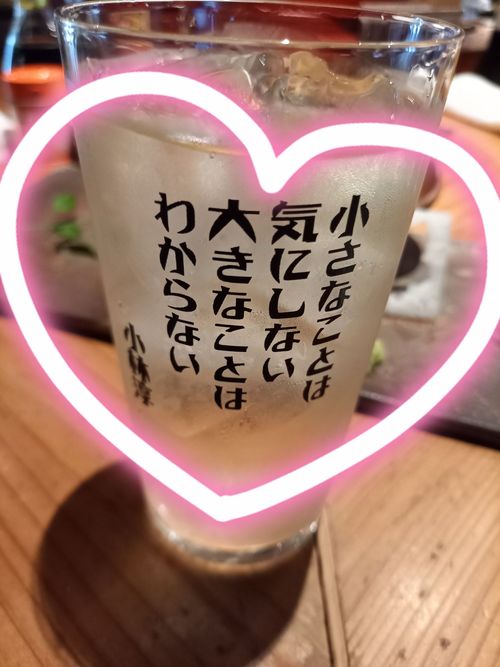 小さなことは
気にしない
大きなことは
わからない